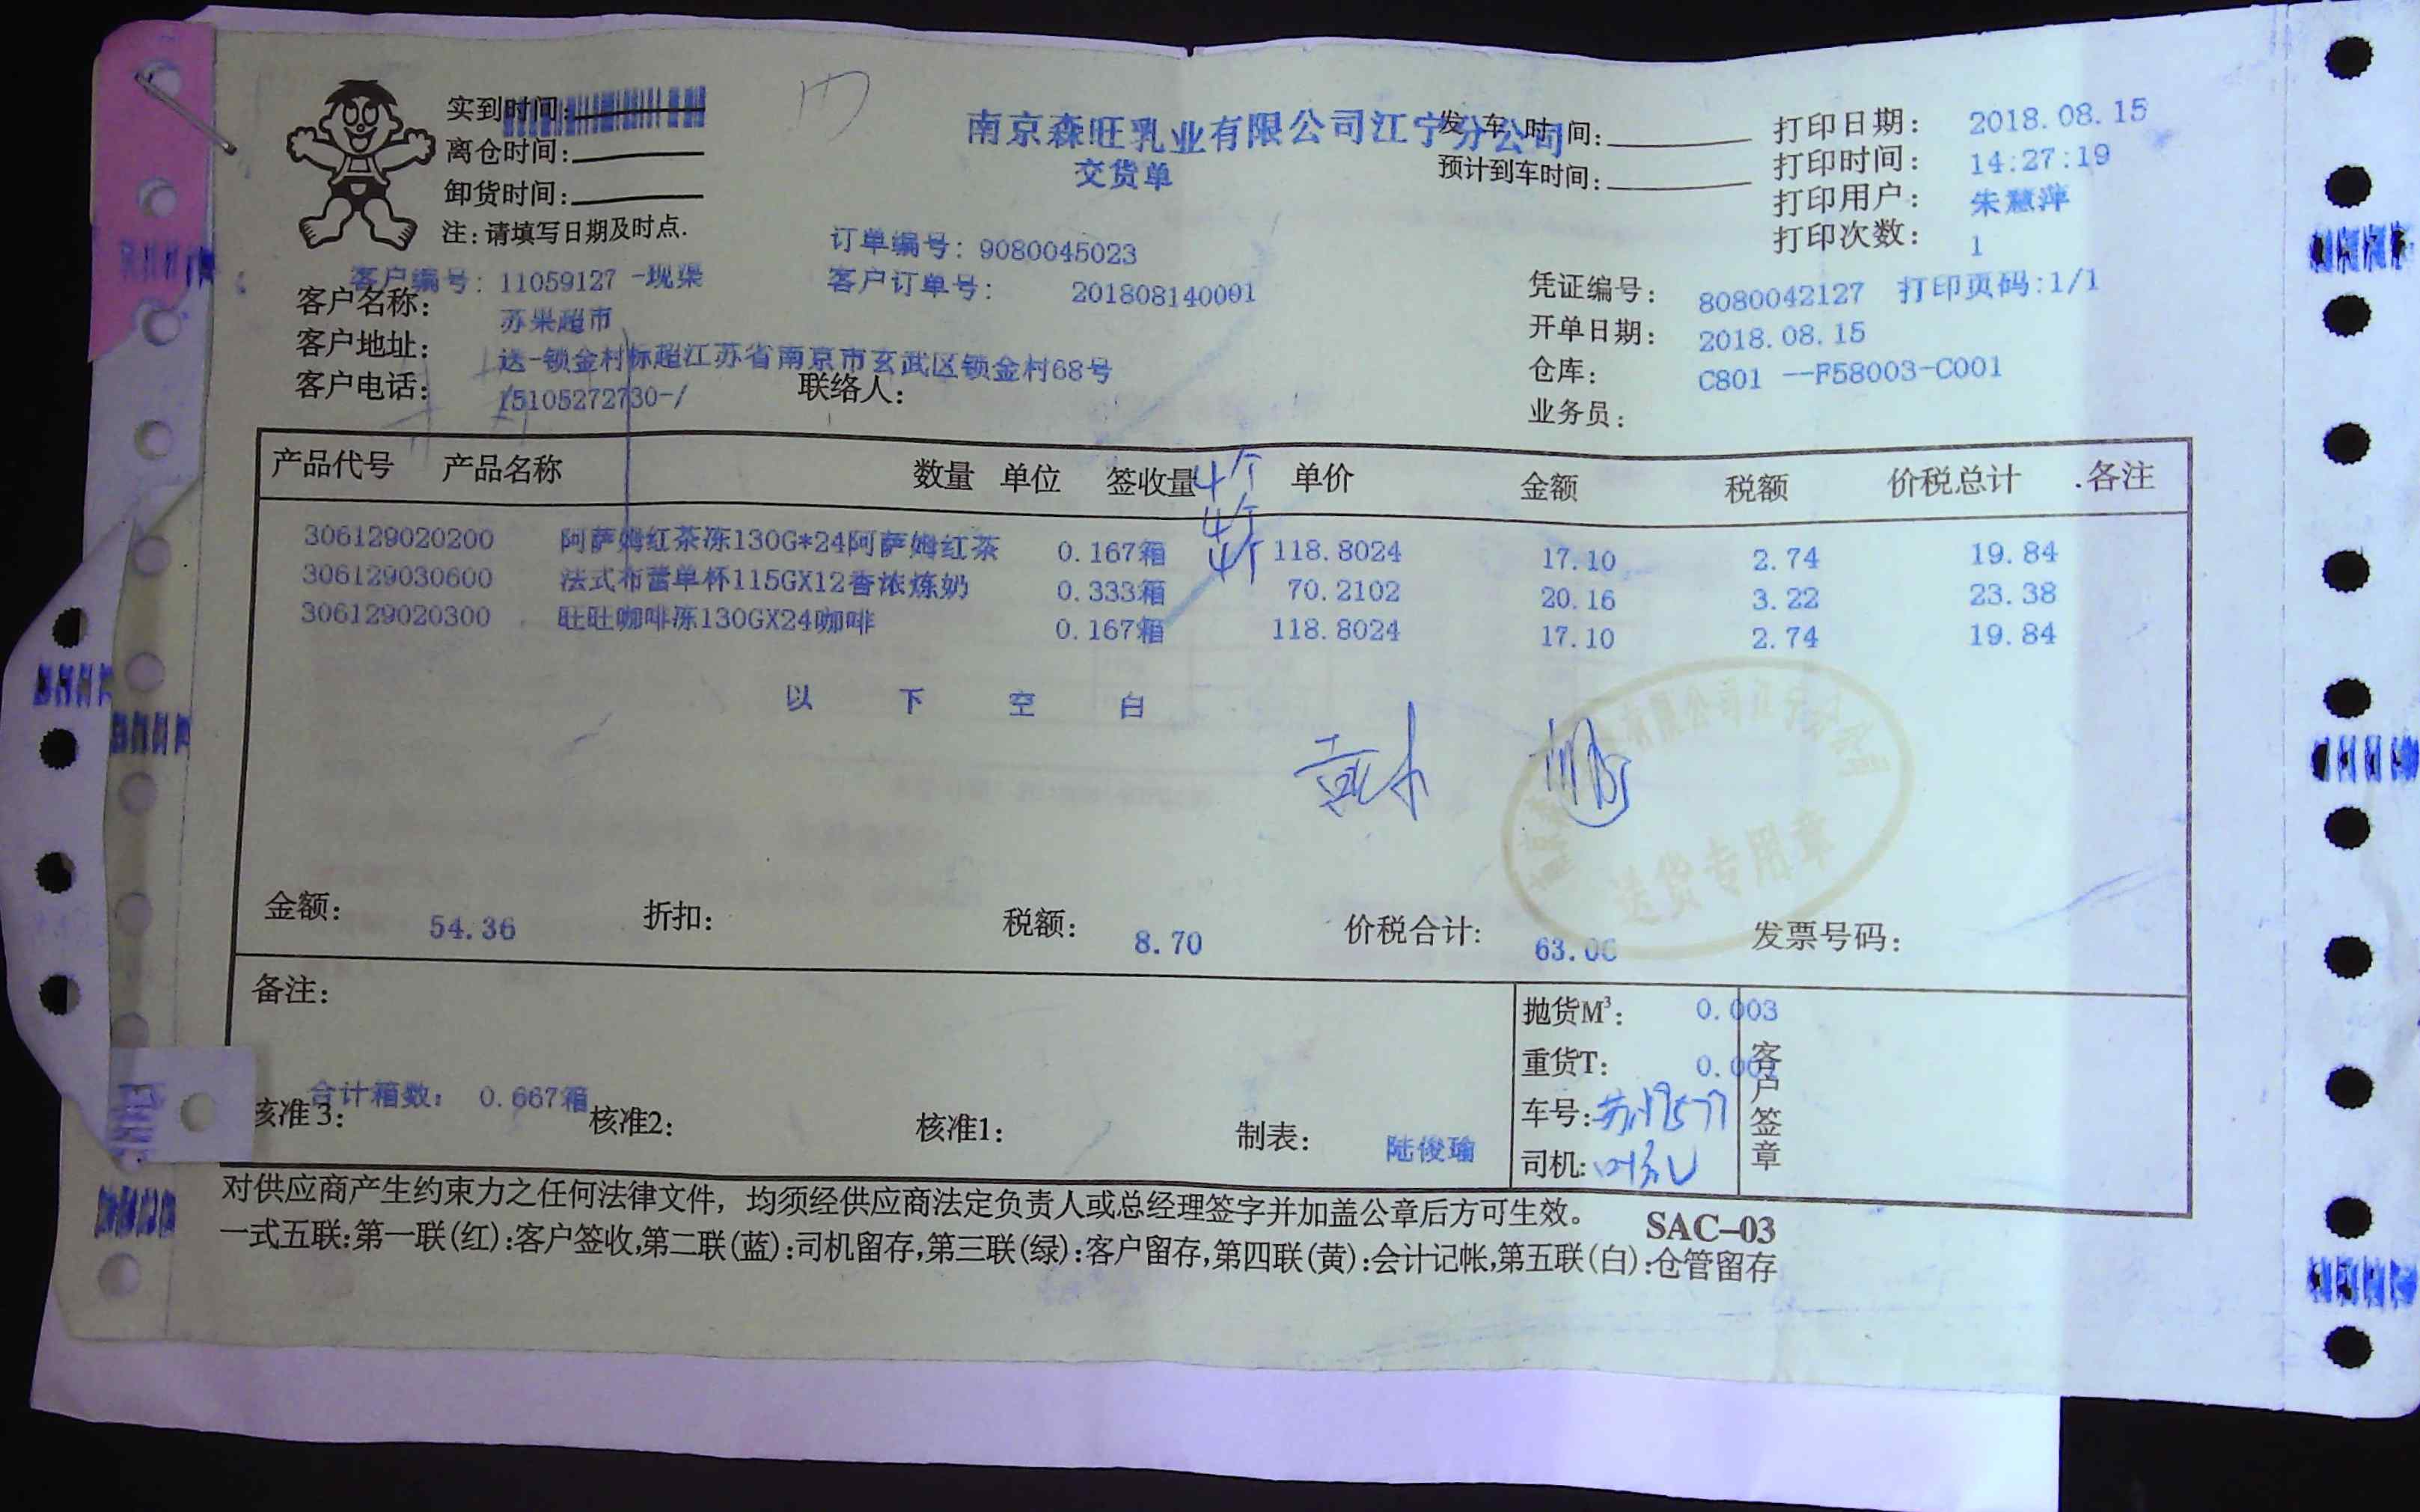 实到时间:
离仓时间:
卸货时间:
注:请填写日期及时点.
南京森旺乳业有限公司江宁分公司
交货单
发车时间:
预计到车时间:
打印日期: 2018.08.15
打印时间: 14:27:19
打印用户: 朱慧萍
打印次数: 1
订单编号: 9080045023
客户编号: 11059127 -现渠
客户订单号: 201808140091
客户名称: 苏果超市
客户地址: 送-锁金村标超江苏省南京市玄武区锁金村68号
客户电话: 15105272730-/ 联络人:
凭证编号: 8080042127 打印页码:1/1
开单日期: 2018.08.15
仓库: C801 --F58003-C001
业务员:
产品代号 产品名称 数量 单位 签收量 单价 金额 税额 价税总计 .各注
4个
306129020200 阿萨姆红茶冻130G*24阿萨姆红茶 0.167箱 4个 118.8024 17.10 2.74 19.84
306129030600 法式布蕾单杯115GX12香浓炼奶 0.333箱 4个 70.2102 20.16 3.22 23.38
306129020300 旺旺咖啡冻130GX24咖啡 0.167箱 118.8024 17.10 2.74 19.84
以下空白
有限公司江宁分公司
送货专用章
金额: 54.36 折扣: 税额: 8.70 价税合计: 63.06 发票号码:
备注:
抛货M³: 0.003
重货T:
车号:
司机:
客户签章
合计箱数: 0.667箱
核准3: 核准2: 核准1: 制表: 陆俊瑜
对供应商产生约束力之任何法律文件, 均须经供应商法定负责人或总经理签字并加盖公章后方可生效。 SAC-03
一式五联:第一联(红):客户签收,第二联(蓝):司机留存,第三联(绿):客户留存,第四联(黄):会计记帐,第五联(白):仓管留存